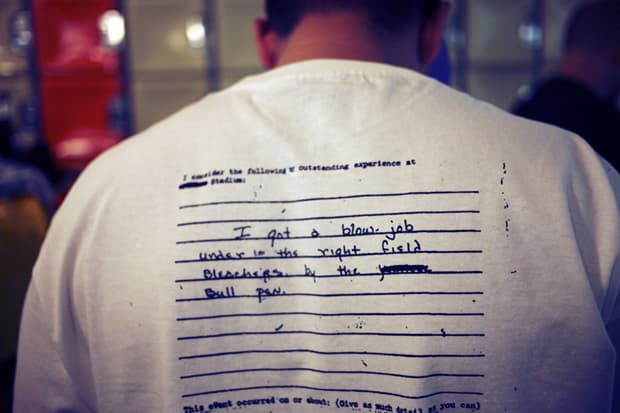 I consider the following outstanding experience at
Stadium:
I got a blow-job
under in the right field
Bleachers by the
Bull pen.
This event occurred on or about: (Give as much detail as you can)